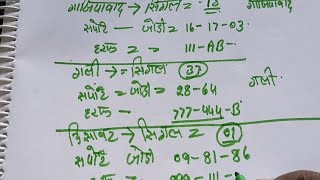 गाजियाबाद → सिंगल =
सपोर्ट — जोडी = 16-17-03.
हरफ = = 111-AB-
गली → = सिंगल (37) गली.
सपोर्ट = जोडी = 28-64
हरफ - 777-444-B
दिसावर → सिंगल = (01)
सपोर्ट जोडी 09-81-86